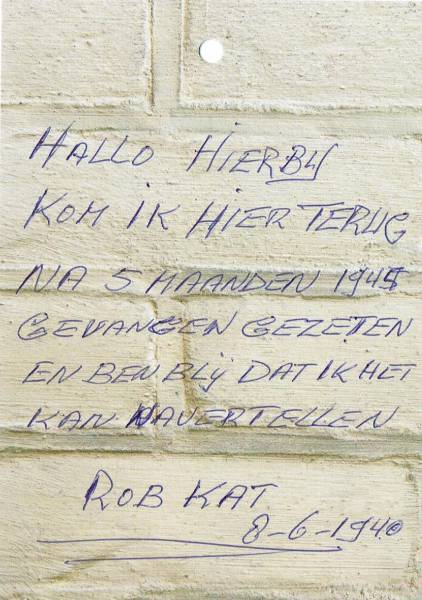 HALLO HIERBIJ
KOM IK HIER TERUG
NA 5 MAANDEN 1945
GEVANGEN GEZETEN
EN BEN BLIJ DAT IK HET
KAN NAVERTELLEN
ROB KAT
8-6-1940